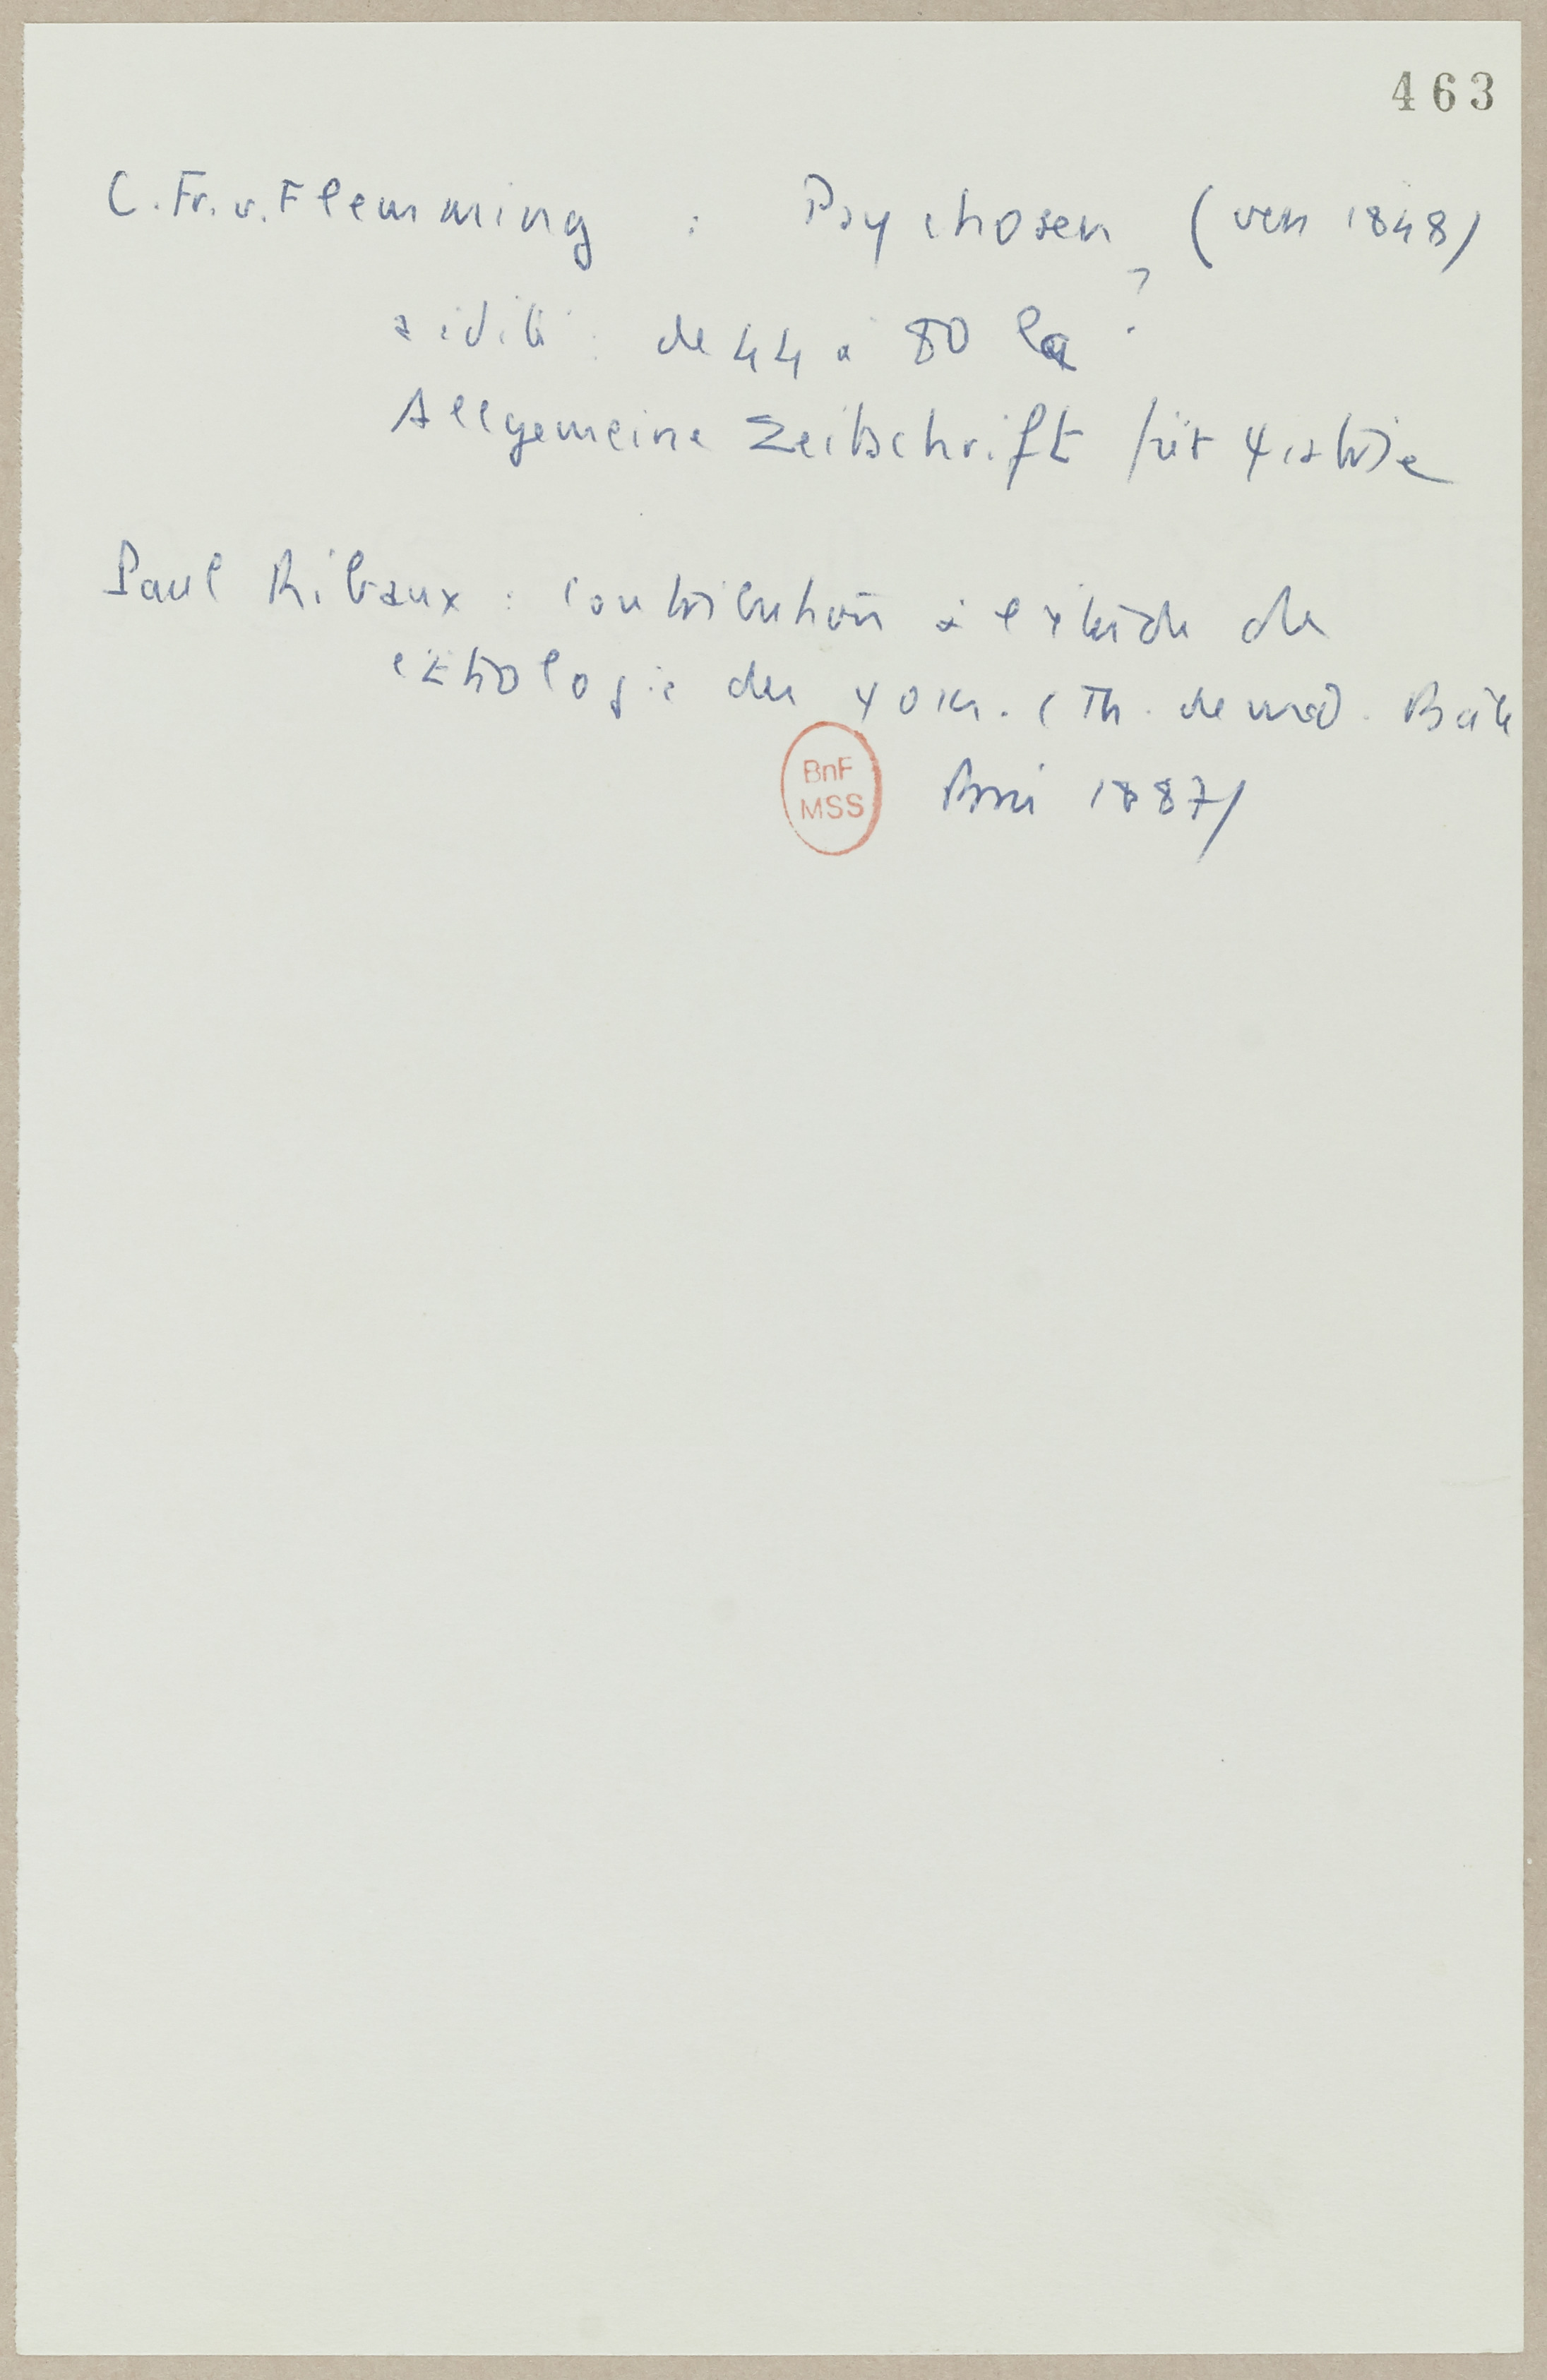 463
C. Fr. v. Flemming : Psychosen (vers 1848)
?
a édité : de 44 à 80 la
Allgemeine Zeitschrift für ψiatrie
Paul Ribaux : Contribution à l'étude de
l'étiologie des ψoses. (Th. de med. Bâle
BnF
MSS
1887)